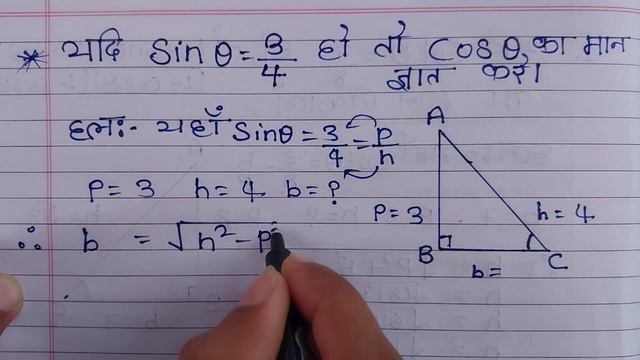 * यदि Sin θ = 3/4 हो तो Cos θ, का मान
ज्ञात करो।
हलः- यहाँ Sinθ = 3/4 = P/h
P = 3 h = 4 b = ?
∴ b = √h² - P²
A
P = 3
h = 4
B
b =
C